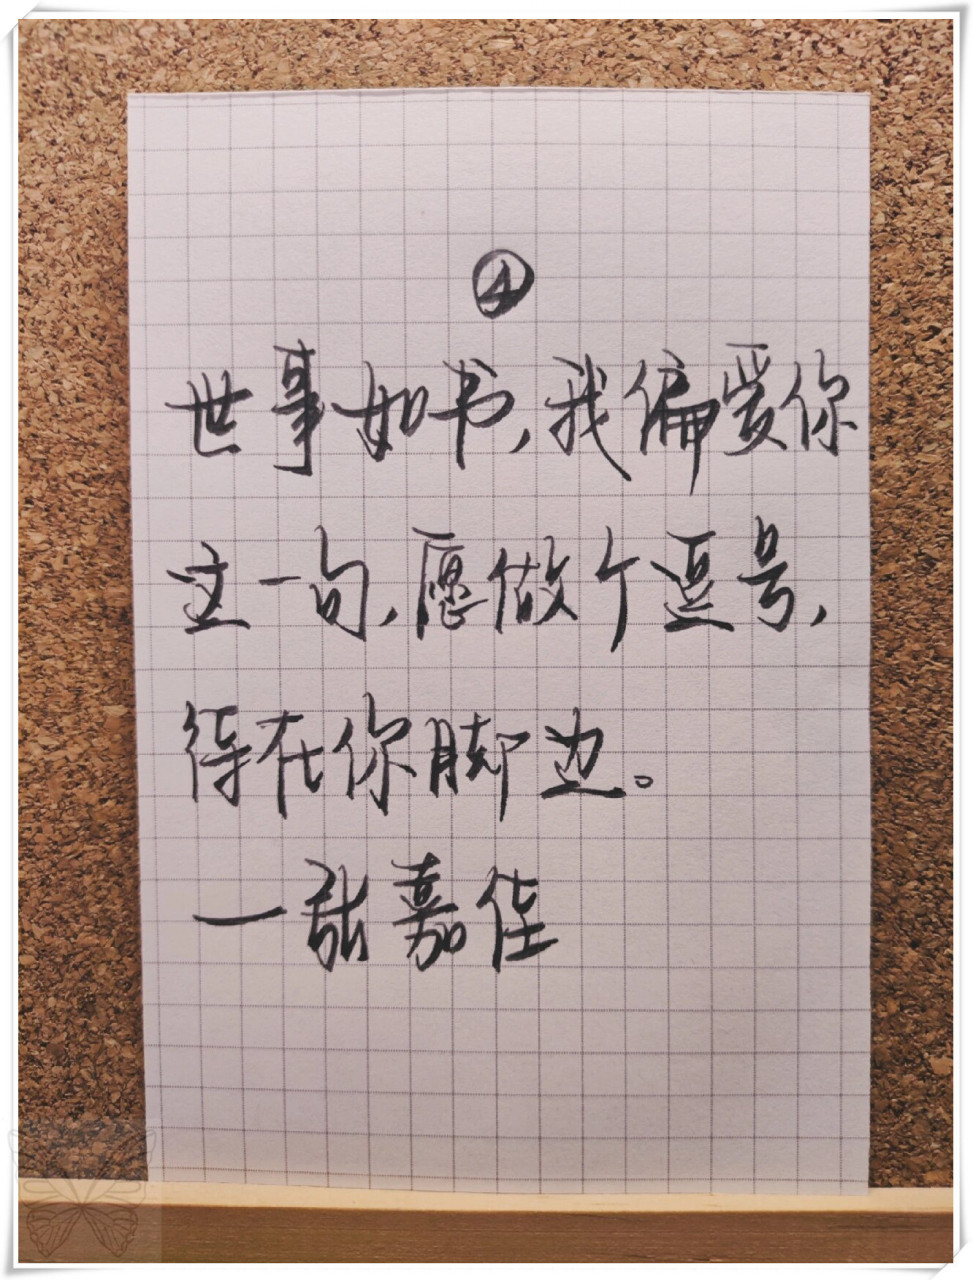 ④
世事如书，我偏爱你
这一句，愿做个逗号，
待在你脚边。
—张嘉佳